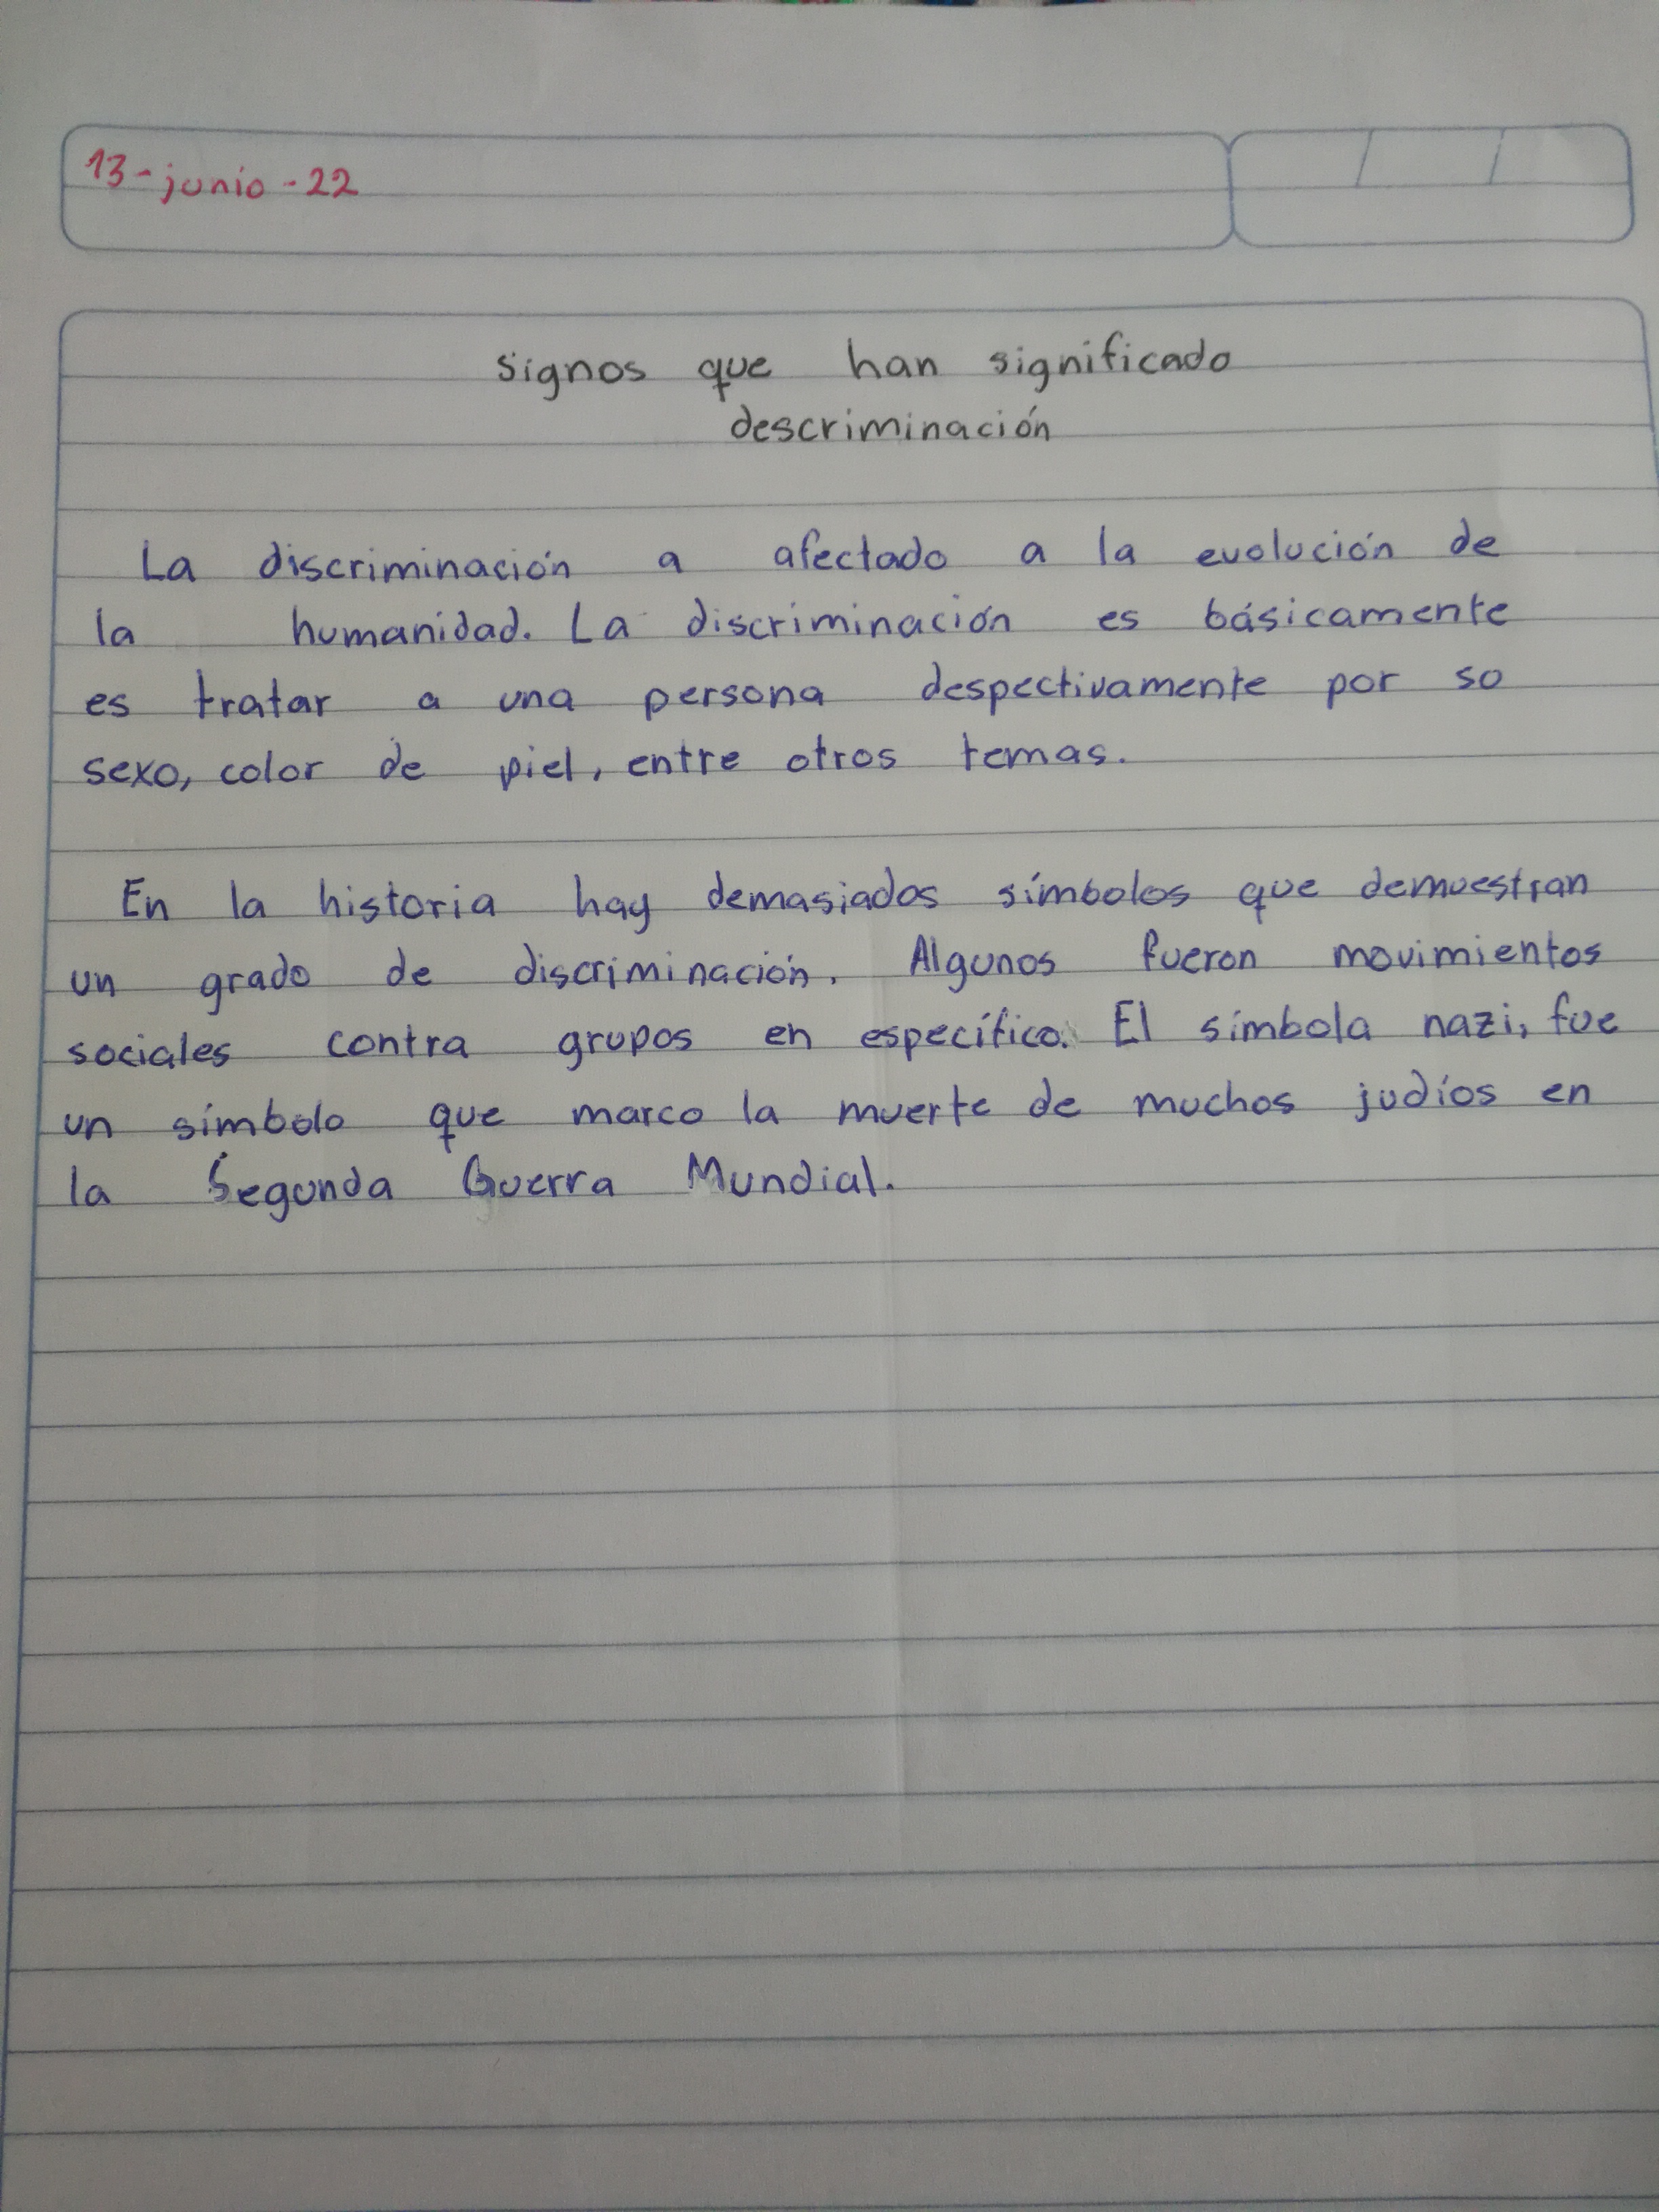 13-junio-22
signos que han significado
descriminación
La discriminación a afectado a la evolución de
la humanidad. La discriminación es básicamente
es tratar a una persona despectivamente por su
sexo, color de piel, entre otros temas.
En la historia hay demasiados símbolos que demuestran
un grado de discriminación. Algunos fueron movimientos
sociales contra grupos en específico. El símbola nazi, fue
un símbolo que marco la muerte de muchos judíos en
la Segunda Guerra Mundial.